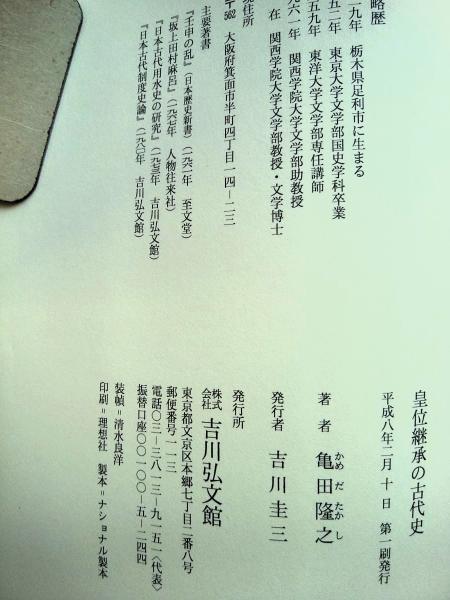 略歴
一九年　栃木県足利市に生まる
五二年　東京大学文学部国史学科卒業
五九年　東洋大学文学部専任講師
六一年　関西学院大学文学部助教授
在　関西学院大学文学部教授・文学博士
現住所
〒562　大阪府箕面市半町四丁目一四－二三
主要著書
『壬申の乱』（日本歴史新書）（一九六一年　至文堂）
『坂上田村麻呂』（一九六七年　人物往来社）
『日本古代用水史の研究』（一九七三年　吉川弘文館）
『日本古代制度史論』（一九八〇年　吉川弘文館）
皇位継承の古代史
平成八年二月十日　第一刷発行
著者　亀田隆之
かめだたかし
発行者　吉川圭三
発行所
株式会社　吉川弘文館
東京都文京区本郷七丁目二番八号
郵便番号一一三
電話〇三－三八一三－九一五一〈代表〉
振替口座〇〇一〇〇－五－二四四
装幀＝清水良洋
印刷＝理想社　製本＝ナショナル製本